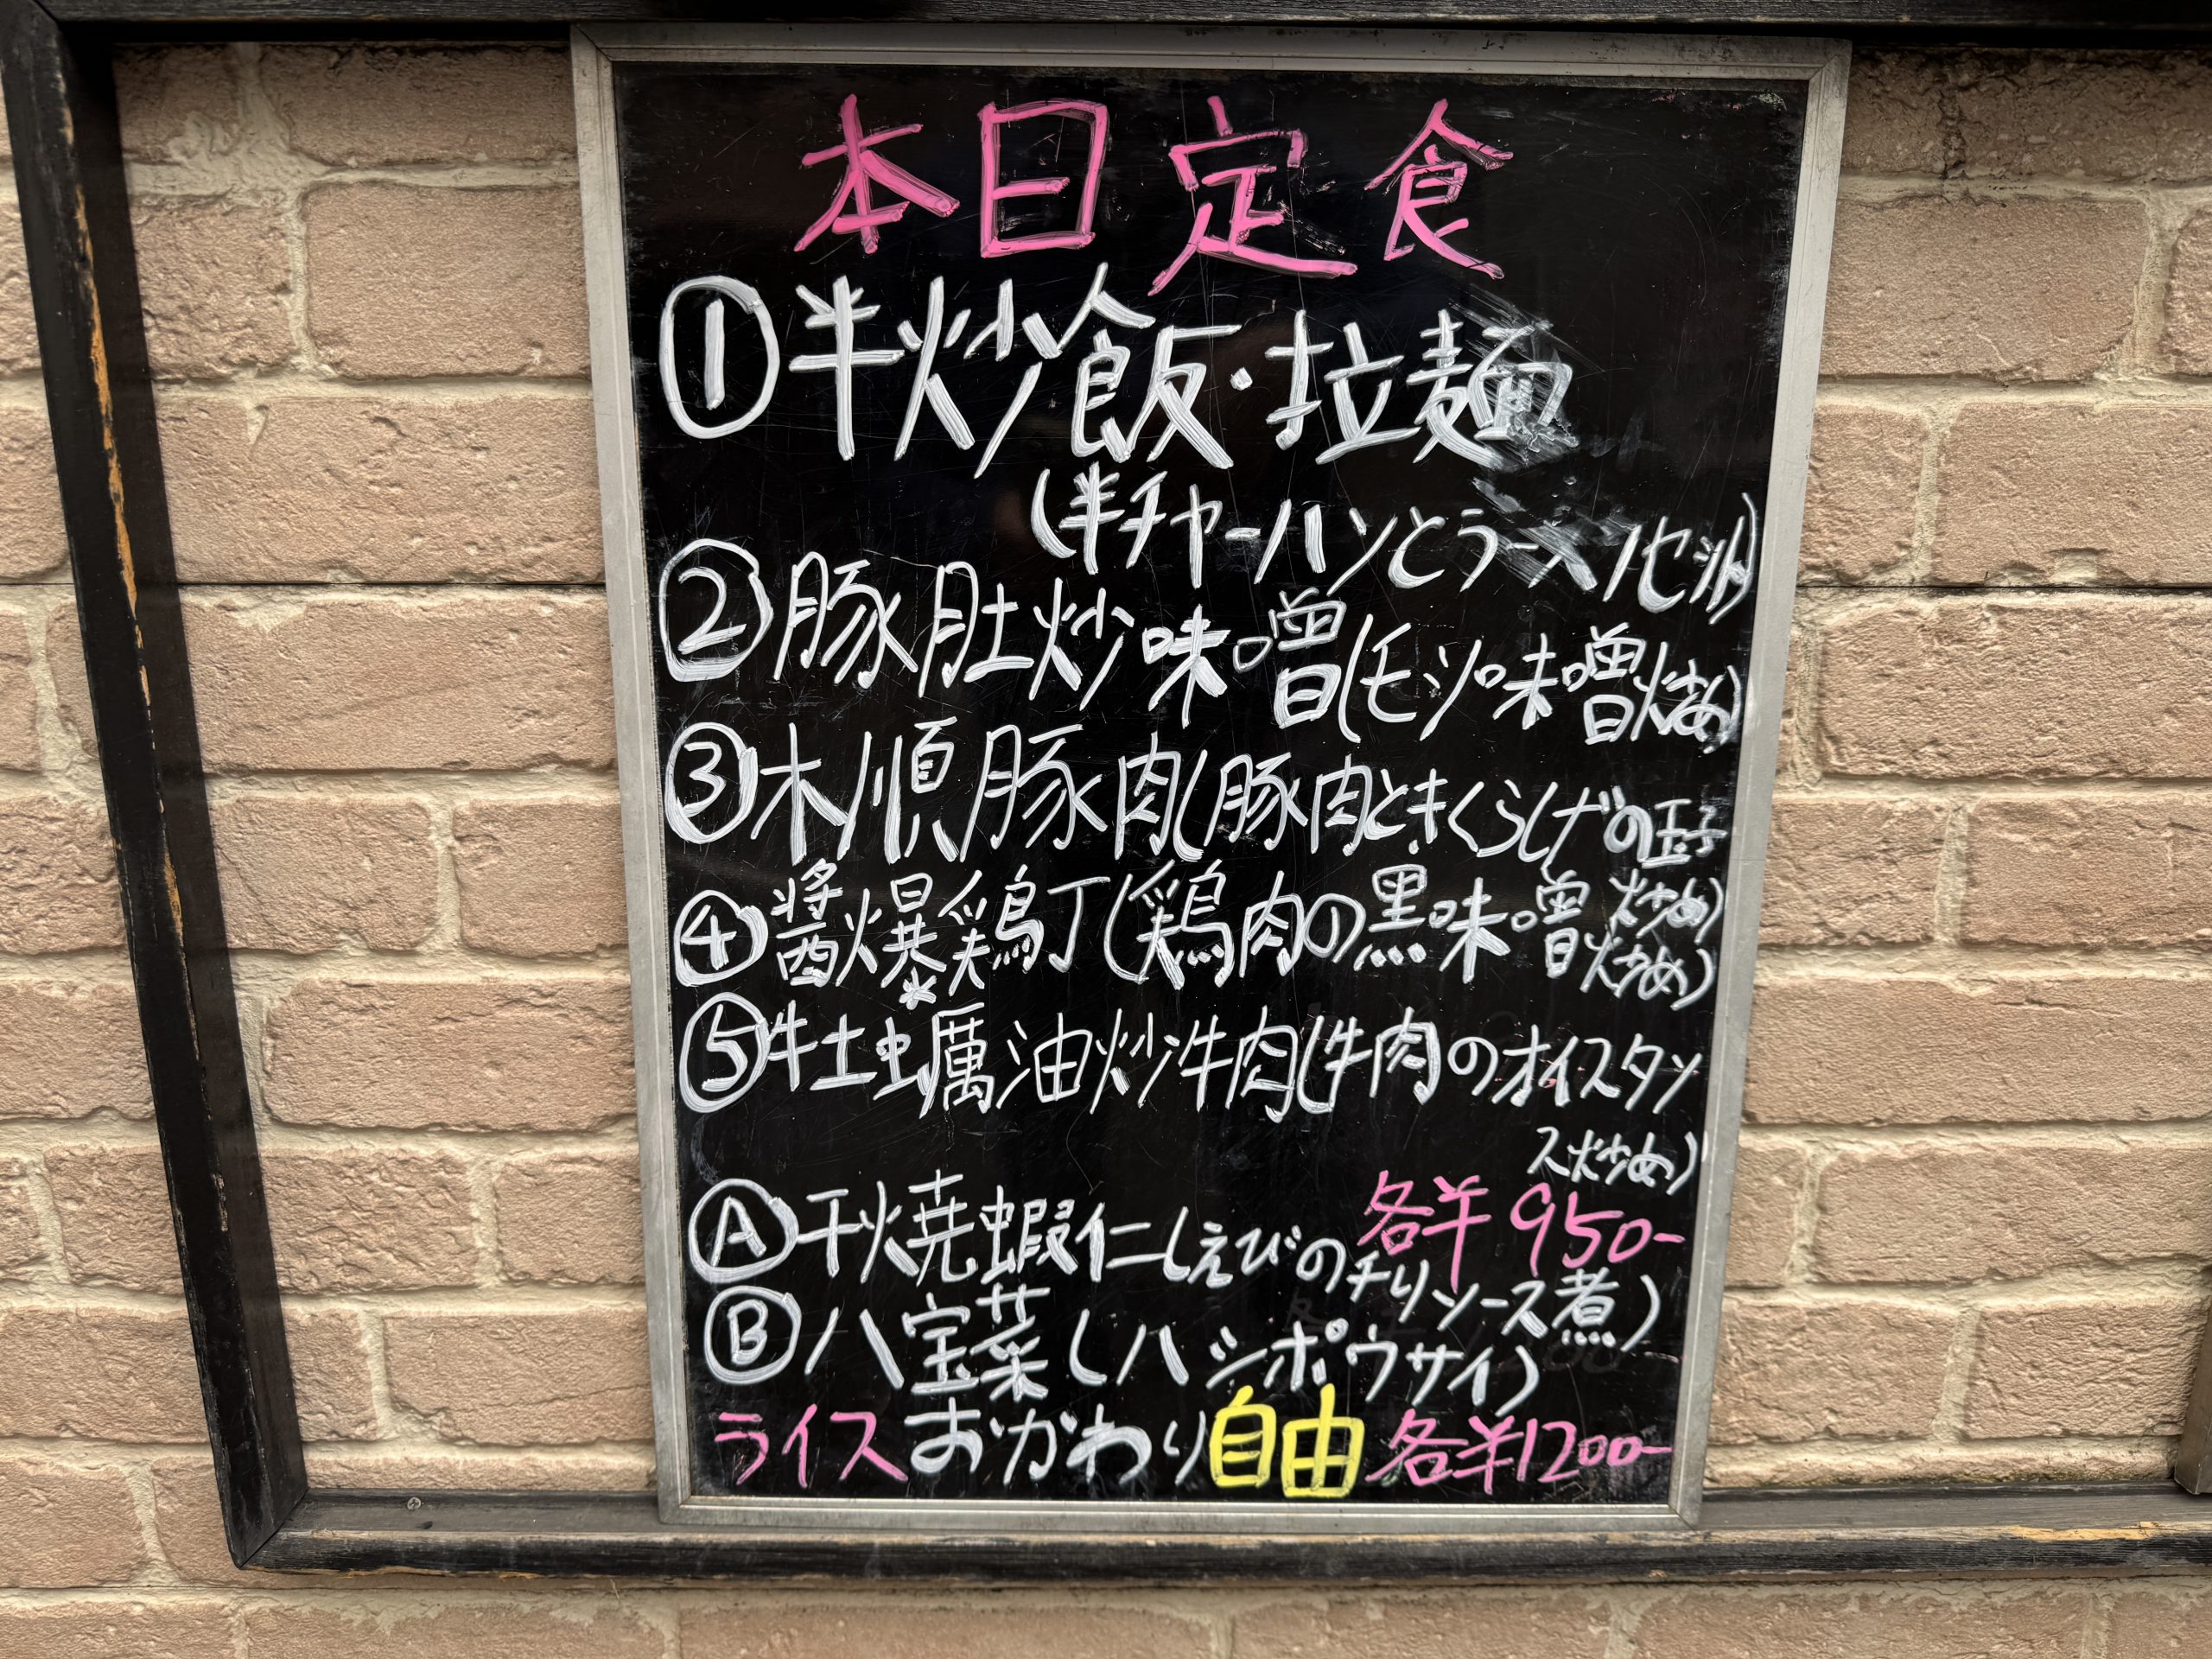 本日定食
①半炒飯・拉麺
(半チャーハンとラーメンセット)
②豚肚炒味噌(モツ味噌炒め)
③木順豚肉(豚肉ときくらげの玉子
炒め)
④醤爆鶏丁(鶏肉の黒味噌炒め)
⑤牡蠣油炒牛肉(牛肉のオイスタソ
ス炒め)
各¥950-
Ⓐ干焼蝦仁(えびのチリソース煮)
Ⓑ八宝菜(ハッポウサイ)
ライスおかわり自由 各¥1200-